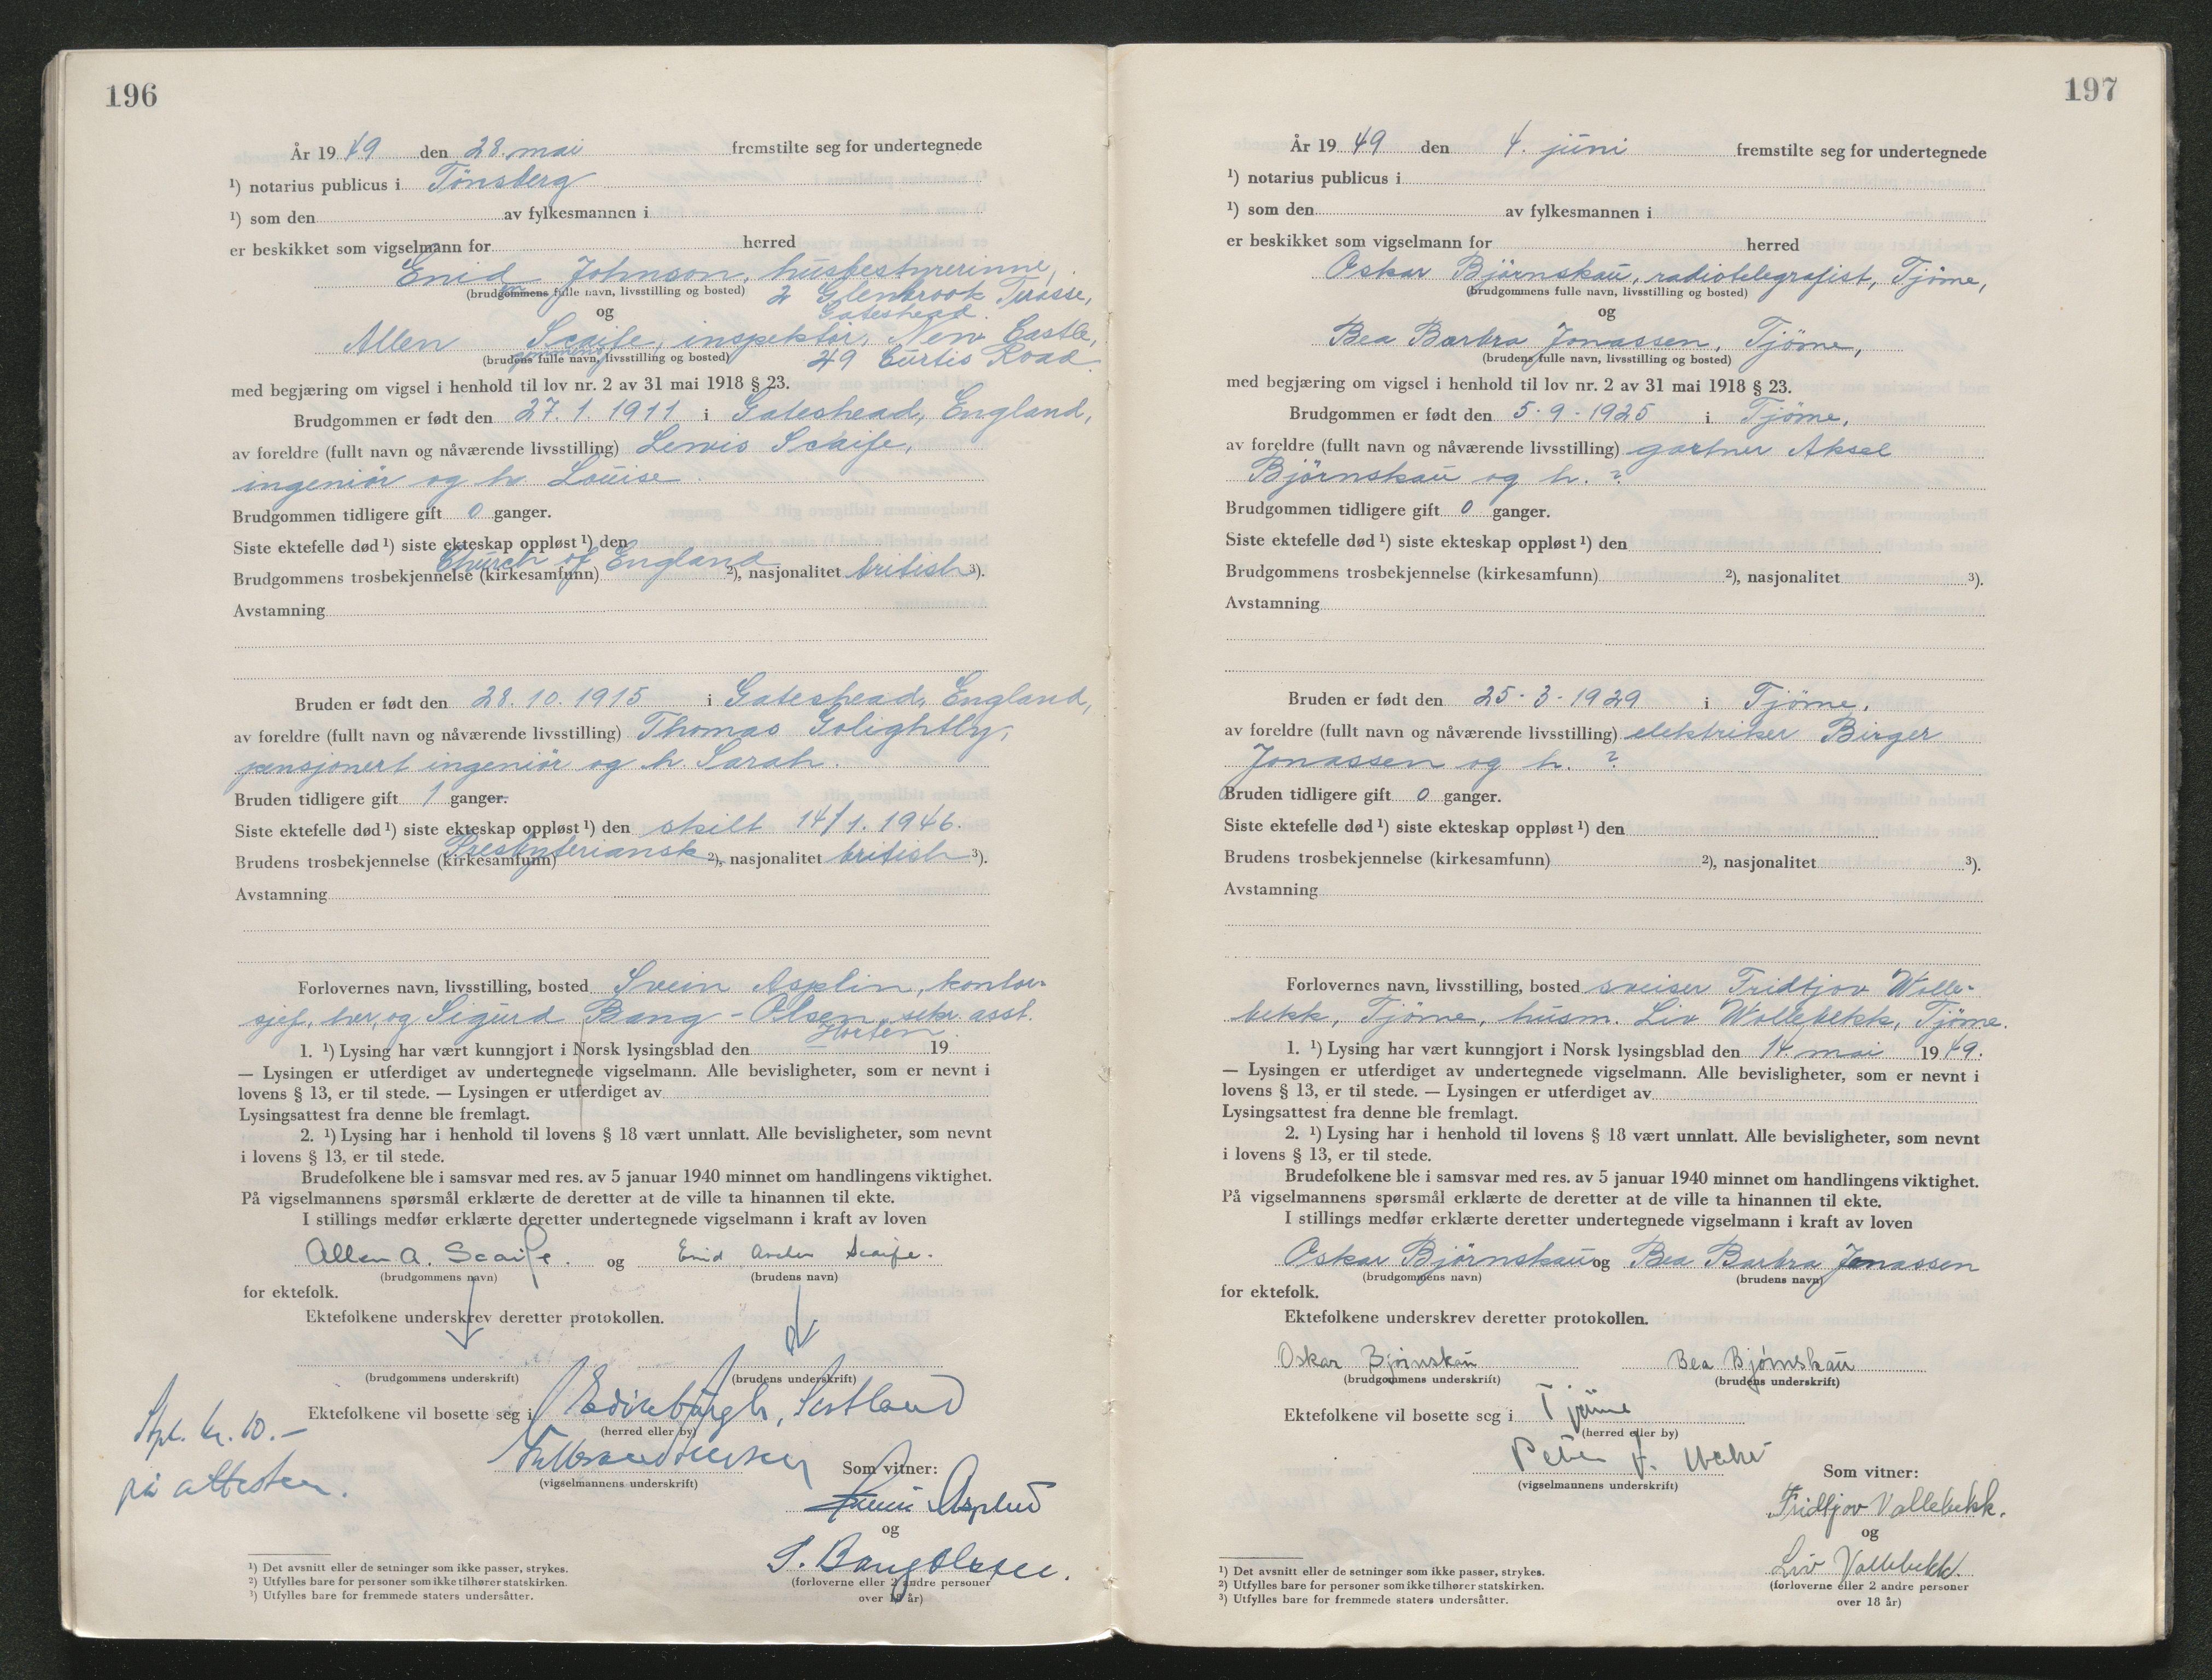 196
År 1949 den 28. mai fremstilte seg for undertegnede
¹) notarius publicus i Tönsberg
¹) som den av fylkesmannen i
er beskikket som vigselmann for herred
Enid Johnson, husbestyrerinne,
(brudgommens fulle navn, livsstilling og bosted) 2 Glenbrook Terasse,
og Gateshead.
Allen Scaife, inspektör, New Castle,
(brudens fulle navn, livsstilling og bosted) 49 Curtis Road.
med begjæring om vigsel i henhold til lov nr. 2 av 31 mai 1918 § 23.
Brudgommen er født den 27. 1. 1911 i Gateshead, England,
av foreldre (fullt navn og nåværende livsstilling) Lewis Scaife,
ingeniör og h. Louise.
Brudgommen tidligere gift 0 ganger.
Siste ektefelle død ¹) siste ekteskap oppløst ¹) den
Brudgommens trosbekjennelse (kirkesamfunn) Church of England ²), nasjonalitet british ³).
Avstamning
Bruden er født den 28. 10. 1915 i Gateshead, England,
av foreldre (fullt navn og nåværende livsstilling) Thomas Golightly,
pensjonert ingeniör og h. Sarah.
Bruden tidligere gift 1 ganger.
Siste ektefelle død ¹) siste ekteskap oppløst ¹) den skilt 14/1. 1946.
Brudens trosbekjennelse (kirkesamfunn) Presbyteriansk ²), nasjonalitet british ³).
Avstamning
Forlovernes navn, livsstilling, bosted Svein Asplin, kontor-
sjef, her, og Sigurd Bang-Olsen, sekr. asst.
Horten.
1. ¹) Lysing har vært kunngjort i Norsk lysingsblad den 19
— Lysingen er utferdiget av undertegnede vigselmann. Alle bevisligheter, som er nevnt i
lovens § 13, er til stede. — Lysingen er utferdiget av
Lysingsattest fra denne ble fremlagt.
2. ¹) Lysing har i henhold til lovens § 18 vært unnlatt. Alle bevisligheter, som nevnt
i lovens § 13, er til stede.
Brudefolkene ble i samsvar med res. av 5 januar 1940 minnet om handlingens viktighet.
På vigselmannens spørsmål erklærte de deretter at de ville ta hinannen til ekte.
I stillings medfør erklærte deretter undertegnede vigselmann i kraft av loven
Allen A. Scaife. og Enid Scaife.
(brudgommens navn) (brudens navn)
for ektefolk.
Ektefolkene underskrev deretter protokollen.
(brudgommens underskrift) (brudens underskrift)
Ektefolkene vil bosette seg i Edinburgh, Scotland
(herred eller by)
Stpl. kr. 10.-
på attesten.
(vigselmannens underskrift)
Som vitner:
Svein Asplin
og
S. Bang Olsen.
(forloverne eller 2 andre personer
over 18 år)
¹) Det avsnitt eller de setninger som ikke passer, strykes.
²) Utfylles bare for personer som ikke tilhører statskirken.
³) Utfylles bare for fremmede staters undersåtter.
197
År 1949 den 4. juni fremstilte seg for undertegnede
¹) notarius publicus i
¹) som den av fylkesmannen i
er beskikket som vigselmann for herred
Oskar Björnskau, radiotelegrafist, Tjöme,
(brudgommens fulle navn, livsstilling og bosted)
og
Bea Barbra Jonassen, Tjöme,
(brudens fulle navn, livsstilling og bosted)
med begjæring om vigsel i henhold til lov nr. 2 av 31 mai 1918 § 23.
Brudgommen er født den 5-9-1925 i Tjöme,
av foreldre (fullt navn og nåværende livsstilling) gartner Aksel
Björnskau og h. ?
Brudgommen tidligere gift 0 ganger.
Siste ektefelle død ¹) siste ekteskap oppløst ¹) den
Brudgommens trosbekjennelse (kirkesamfunn) ²), nasjonalitet ³).
Avstamning
Bruden er født den 25-3-1929 i Tjöme,
av foreldre (fullt navn og nåværende livsstilling) elektriker Birger
Jonassen og h. ?
Bruden tidligere gift 0 ganger.
Siste ektefelle død ¹) siste ekteskap oppløst ¹) den
Brudens trosbekjennelse (kirkesamfunn) ²), nasjonalitet ³).
Avstamning
Forlovernes navn, livsstilling, bosted sveiser Fridtjov Wolle-
bekk, Tjöme, husm. Liv Wollebekk, Tjöme.
1. ¹) Lysing har vært kunngjort i Norsk lysingsblad den 14. mai 1949.
— Lysingen er utferdiget av undertegnede vigselmann. Alle bevisligheter, som er nevnt i
lovens § 13, er til stede. — Lysingen er utferdiget av
Lysingsattest fra denne ble fremlagt.
2. ¹) Lysing har i henhold til lovens § 18 vært unnlatt. Alle bevisligheter, som nevnt
i lovens § 13, er til stede.
Brudefolkene ble i samsvar med res. av 5 januar 1940 minnet om handlingens viktighet.
På vigselmannens spørsmål erklærte de deretter at de ville ta hinannen til ekte.
I stillings medfør erklærte deretter undertegnede vigselmann i kraft av loven
Oskar Björnskau og Bea Barbra Jonassen
(brudgommens navn) (brudens navn)
for ektefolk.
Ektefolkene underskrev deretter protokollen.
Oskar Bjørnskau Bea Bjørnskau
(brudgommens underskrift) (brudens underskrift)
Ektefolkene vil bosette seg i Tjöme
(herred eller by)
(vigselmannens underskrift)
Som vitner:
Fridtjov Vollebekk.
og
Liv Vollebekk.
(forloverne eller 2 andre personer
over 18 år)
¹) Det avsnitt eller de setninger som ikke passer, strykes.
²) Utfylles bare for personer som ikke tilhører statskirken.
³) Utfylles bare for fremmede staters undersåtter.